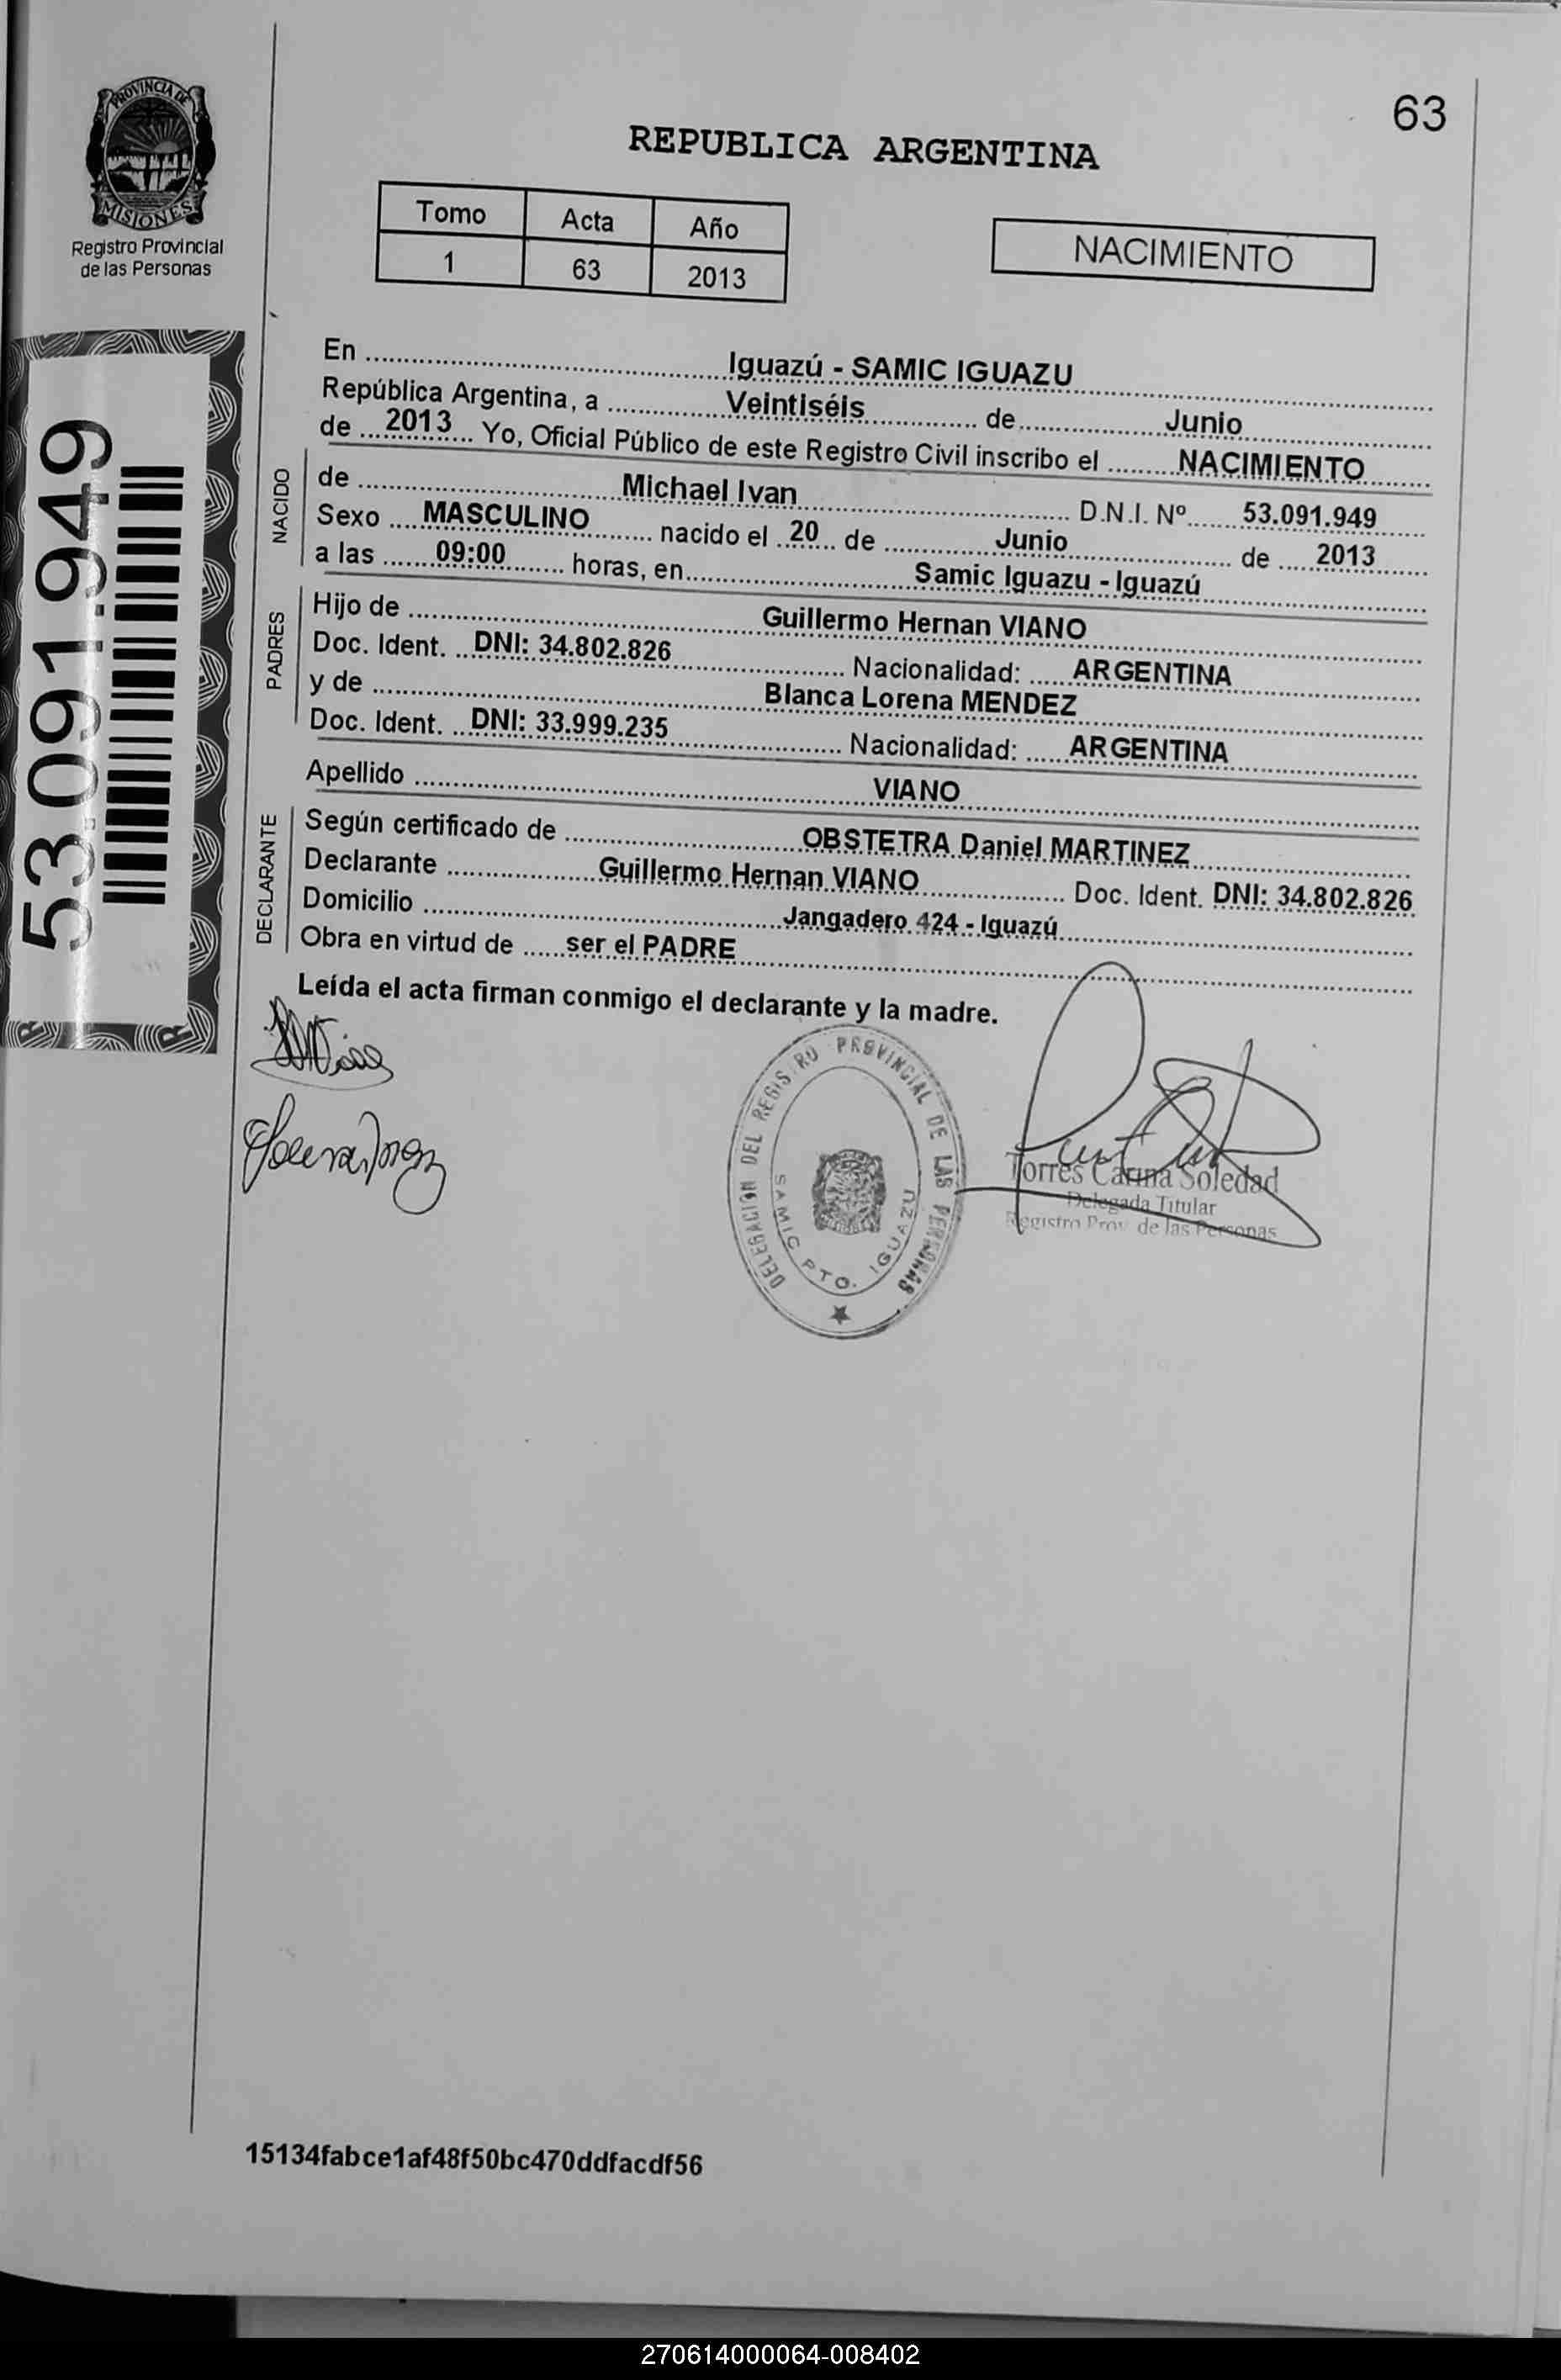 PROVINCIA DE
MISIONES
Registro Provincial
de las Personas
63
REPUBLICA ARGENTINA
Tomo Acta Año
1 63 2013
NACIMIENTO
53.091.949
En Iguazú - SAMIC IGUAZU
República Argentina, a Veintiséis de Junio
de 2013 Yo, Oficial Público de este Registro Civil inscribo el NACIMIENTO
NACIDO
de Michael Ivan D.N.I. Nº 53.091.949
Sexo MASCULINO nacido el 20 de Junio de 2013
a las 09:00 horas, en Samic Iguazu - Iguazú
PADRES
Hijo de Guillermo Hernan VIANO
Doc. Ident. DNI: 34.802.826 Nacionalidad: ARGENTINA
y de Blanca Lorena MENDEZ
Doc. Ident. DNI: 33.999.235 Nacionalidad: ARGENTINA
Apellido VIANO
DECLARANTE
Según certificado de OBSTETRA Daniel MARTINEZ
Declarante Guillermo Hernan VIANO Doc. Ident. DNI: 34.802.826
Domicilio Jangadero 424 - Iguazú
Obra en virtud de ser el PADRE
Leída el acta firman conmigo el declarante y la madre.
DELEGACION DEL REGISTRO PROVINCIAL DE LAS PERSONAS
SAMIC PTO. IGUAZU
Torres Carina Soledad
Delegada Titular
Registro Prov. de las Personas
15134fabce1af48f50bc470ddfacdf56
270614000064-008402